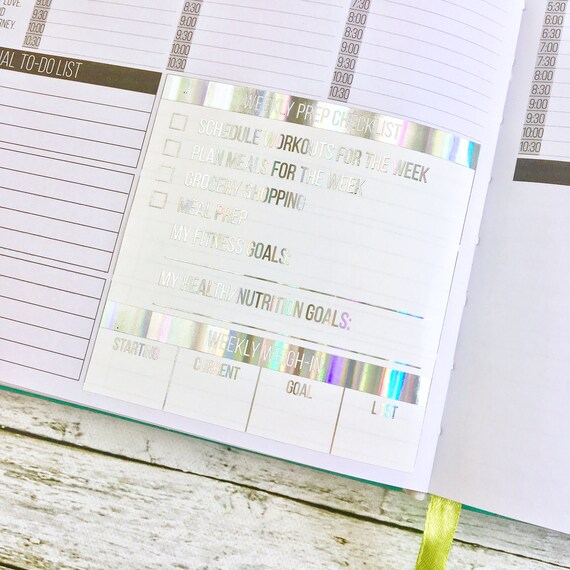 LOVE
ND
RNEY.
9:00
9:30
10:00
10:30
9:00
9:30
10:00
10:30
7:00
7:30
8:00
8:30
9:00
9:30
10:00
10:30
5:30
6:00
6:30
7:00
7:30
8:00
8:30
9:00
9:30
10:00
10:30
AL TO-DO LIST
WEEKLY PREP CHECKLIST
SCHEDULE WORKOUTS FOR THE WEEK
PLAN MEALS FOR THE WEEK
GROCERY SHOPPING
MEAL PREP
MY FITNESS GOALS:
MY HEALTH/NUTRITION GOALS:
WEEKLY WEIGH-IN
STARTING
CURRENT
GOAL
LOST